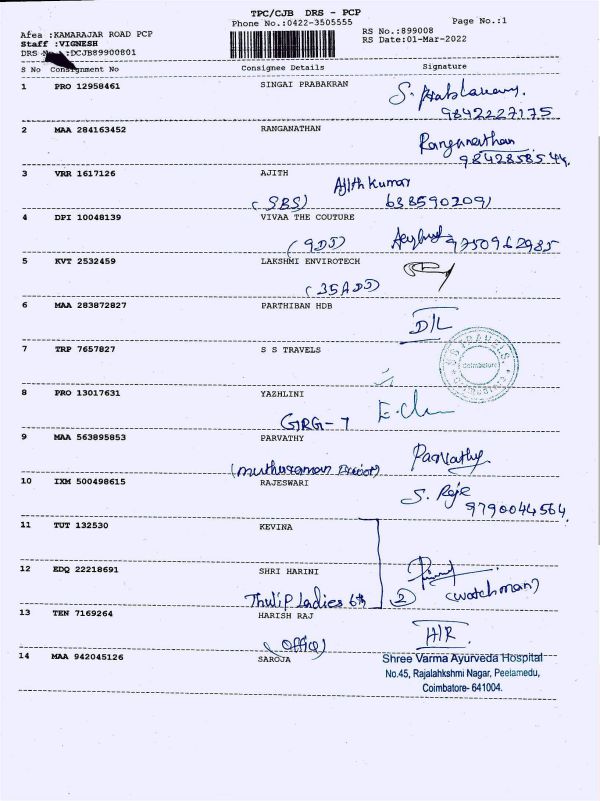 TPC/CJB DRS - PCP
Phone No.:0422-3505555 Page No.:1
Afea :KAMARAJAR ROAD PCP RS No.:899008
Staff :VIGNESH RS Date:01-Mar-2022
DRS :DCJB89900801
S No Consignment No Consignee Details Signature
1 PRO 12958461 SINGAI PRABAKRAN
9842227175
2 MAA 284163452 RANGANATHAN
Ranganathan
9842858544
3 VRR 1617126 AJITH
Ajith kumar
(SBS) 6385902091
4 DPI 10048139 VIVAA THE COUTURE
9750962985
5 KVT 2532459 LAKSHMI ENVIROTECH
6 MAA 283872827 PARTHIBAN HDB
D/L
7 TRP 7657827 S S TRAVELS
S.S TRAVELS
Coimbatore
8 PRO 13017631 YAZHLINI
GRG-7
9 MAA 563895853 PARVATHY
Parvathy
10 IXM 500498615 RAJESWARI
S. Raje
9790044564
11 TUT 132530 KEVINA
12 EDQ 22218691 SHRI HARINI
Thulip Ladies 6th (2) (watchman)
13 TEN 7169264 HARISH RAJ
H/R
(office)
14 MAA 942045126 SAROJA
Shree Varma Ayurveda Hospital
No.45, Rajalahkshmi Nagar, Peelamedu,
Coimbatore- 641004.